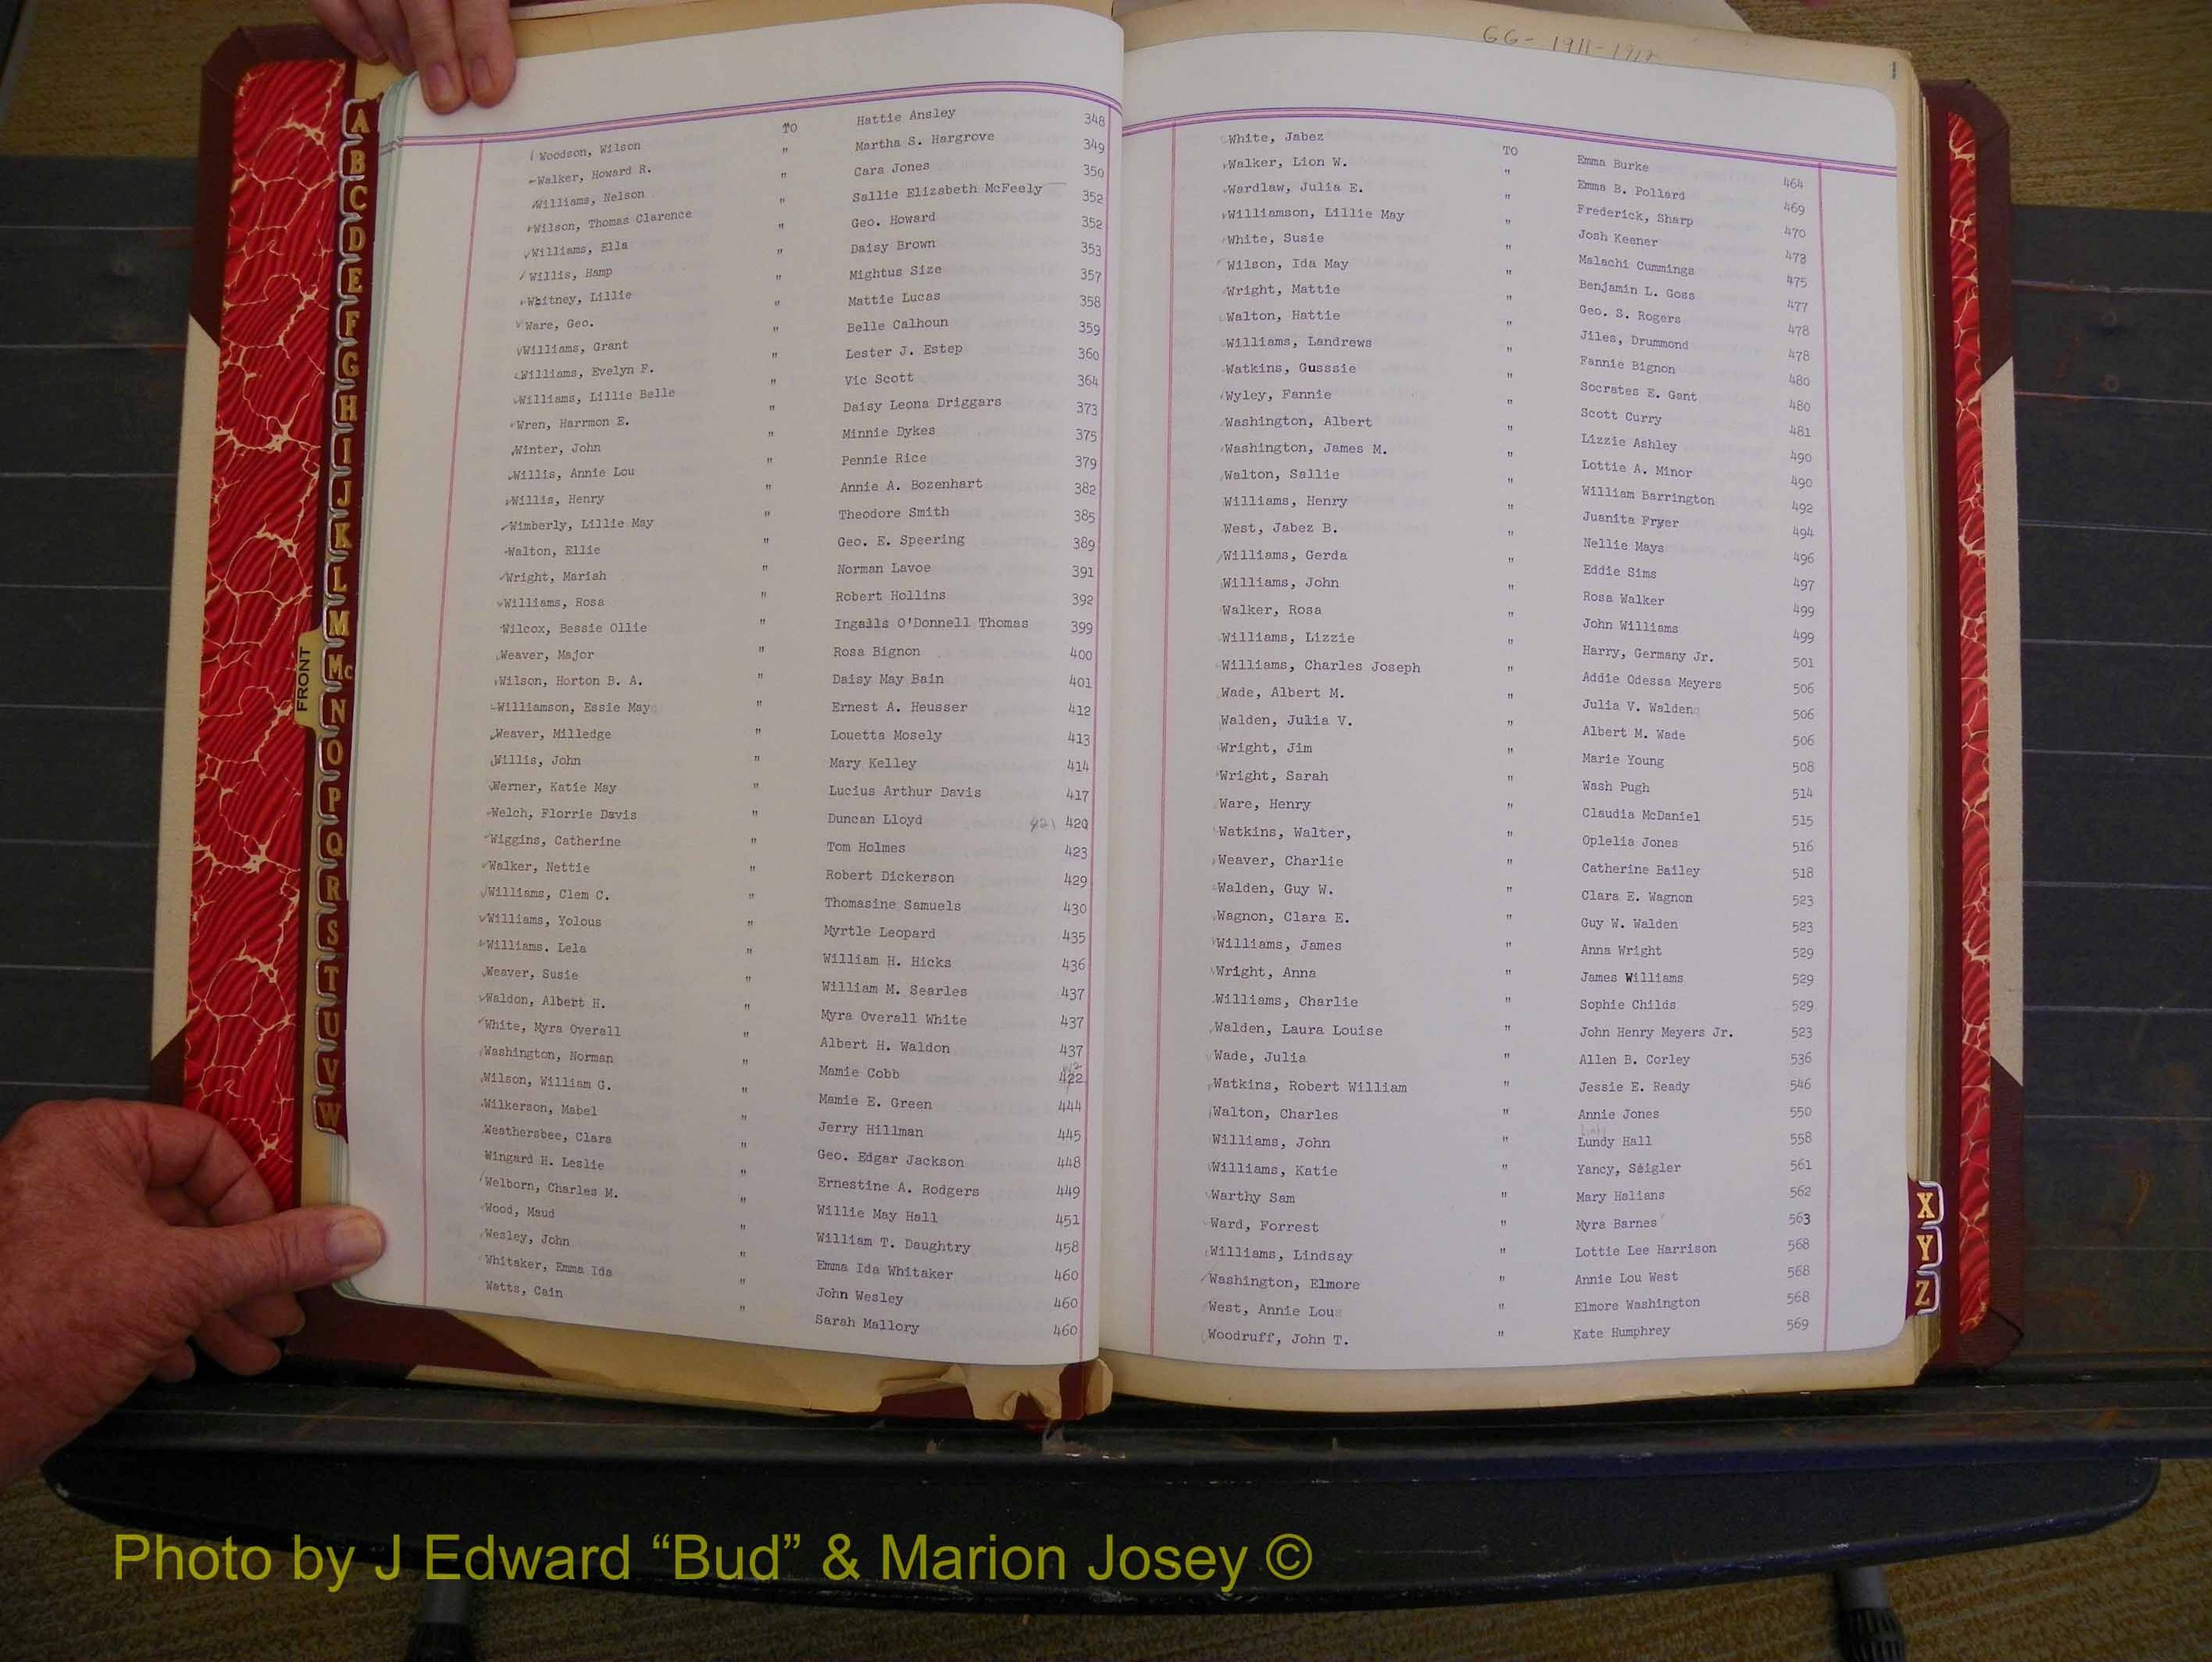 GG- 1911-1917
Woodson, Wilson TO Hattie Ansley 348
Walker, Howard R. " Martha S. Hargrove 349
Williams, Nelson " Cara Jones 350
Wilson, Thomas Clarence " Sallie Elizabeth McFeely 352
Williams, Ella " Geo. Howard 352
Willis, Hamp " Daisy Brown 353
Whitney, Lillie " Mightus Size 357
Ware, Geo. " Mattie Lucas 358
Williams, Grant " Belle Calhoun 359
Williams, Evelyn F. " Lester J. Estep 360
Williams, Lillie Belle " Vic Scott 364
Wren, Harrmon E. " Daisy Leona Driggars 373
Winter, John " Minnie Dykes 375
Willis, Annie Lou " Pennie Rice 379
Willis, Henry " Annie A. Bozenhart 382
Wimberly, Lillie May " Theodore Smith 385
Walton, Ellie " Geo. E. Speering 389
Wright, Mariah " Norman Lavoe 391
Williams, Rosa " Robert Hollins 392
Wilcox, Bessie Ollie " Ingalls O'Donnell Thomas 399
Weaver, Major " Rosa Bignon 400
Wilson, Horton B. A. " Daisy May Bain 401
Williamson, Essie May " Ernest A. Heusser 412
Weaver, Milledge " Louetta Mosely 413
Willis, John " Mary Kelley 414
Werner, Katie May " Lucius Arthur Davis 417
Welch, Florrie Davis " Duncan Lloyd 421 420
Wiggins, Catherine " Tom Holmes 423
Walker, Nettie " Robert Dickerson 429
Williams, Clem C. " Thomasine Samuels 430
Williams, Yolous " Myrtle Leopard 435
Williams. Lela " William H. Hicks 436
Weaver, Susie " William M. Searles 437
Waldon, Albert H. " Myra Overall White 437
White, Myra Overall " Albert H. Waldon 437
Washington, Norman " Mamie Cobb 422
Wilson, William G. " Mamie E. Green 444
Wilkerson, Mabel " Jerry Hillman 445
Weathersbee, Clara " Geo. Edgar Jackson 448
Wingard H. Leslie " Ernestine A. Rodgers 449
Welborn, Charles M. " Willie May Hall 451
Wood, Maud " William T. Daughtry 458
Wesley, John " Emma Ida Whitaker 460
Whitaker, Emma Ida " John Wesley 460
Watts, Cain " Sarah Mallory 460
White, Jabez TO Emma Burke 464
Walker, Lion W. " Emma B. Pollard 469
Wardlaw, Julia E. " Frederick, Sharp 470
Williamson, Lillie May " Josh Keener 473
White, Susie " Malachi Cummings 475
Wilson, Ida May " Benjamin L. Goss 477
Wright, Mattie " Geo. S. Rogers 478
Walton, Hattie " Jiles, Drummond 478
Williams, Landrews " Fannie Bignon 480
Watkins, Gusssie " Socrates E. Gant 480
Wyley, Fannie " Scott Curry 481
Washington, Albert " Lizzie Ashley 490
Washington, James M. " Lottie A. Minor 490
Walton, Sallie " William Barrington 492
Williams, Henry " Juanita Fryer 494
West, Jabez B. " Nellie Mays 496
Williams, Gerda " Eddie Sims 497
Williams, John " Rosa Walker 499
Walker, Rosa " John Williams 499
Williams, Lizzie " Harry, Germany Jr. 501
Williams, Charles Joseph " Addie Odessa Meyers 506
Wade, Albert M. " Julia V. Walden 506
Walden, Julia V. " Albert M. Wade 506
Wright, Jim " Marie Young 508
Wright, Sarah " Wash Pugh 514
Ware, Henry " Claudia McDaniel 515
Watkins, Walter, " Oplelia Jones 516
Weaver, Charlie " Catherine Bailey 518
Walden, Guy W. " Clara E. Wagnon 523
Wagnon, Clara E. " Guy W. Walden 523
Williams, James " Anna Wright 529
Wright, Anna " James Williams 529
Williams, Charlie " Sophie Childs 529
Walden, Laura Louise " John Henry Meyers Jr. 523
Wade, Julia " Allen B. Corley 536
Watkins, Robert William " Jessie E. Ready 546
Walton, Charles " Annie Jones 550
Williams, John " Lundy Hall 558
Williams, Katie " Yancy, Seigler 561
Warthy Sam " Mary Halians 562
Ward, Forrest " Myra Barnes 563
Williams, Lindsay " Lottie Lee Harrison 568
Washington, Elmore " Annie Lou West 568
West, Annie Lou " Elmore Washington 568
Woodruff, John T. " Kate Humphrey 569
A
B
C
D
E
F
G
H
I
J
K
L
M
Mc
N
O
P
Q
R
S
T
U
V
W
FRONT
X
Y
Z
Photo by J Edward “Bud” & Marion Josey ©